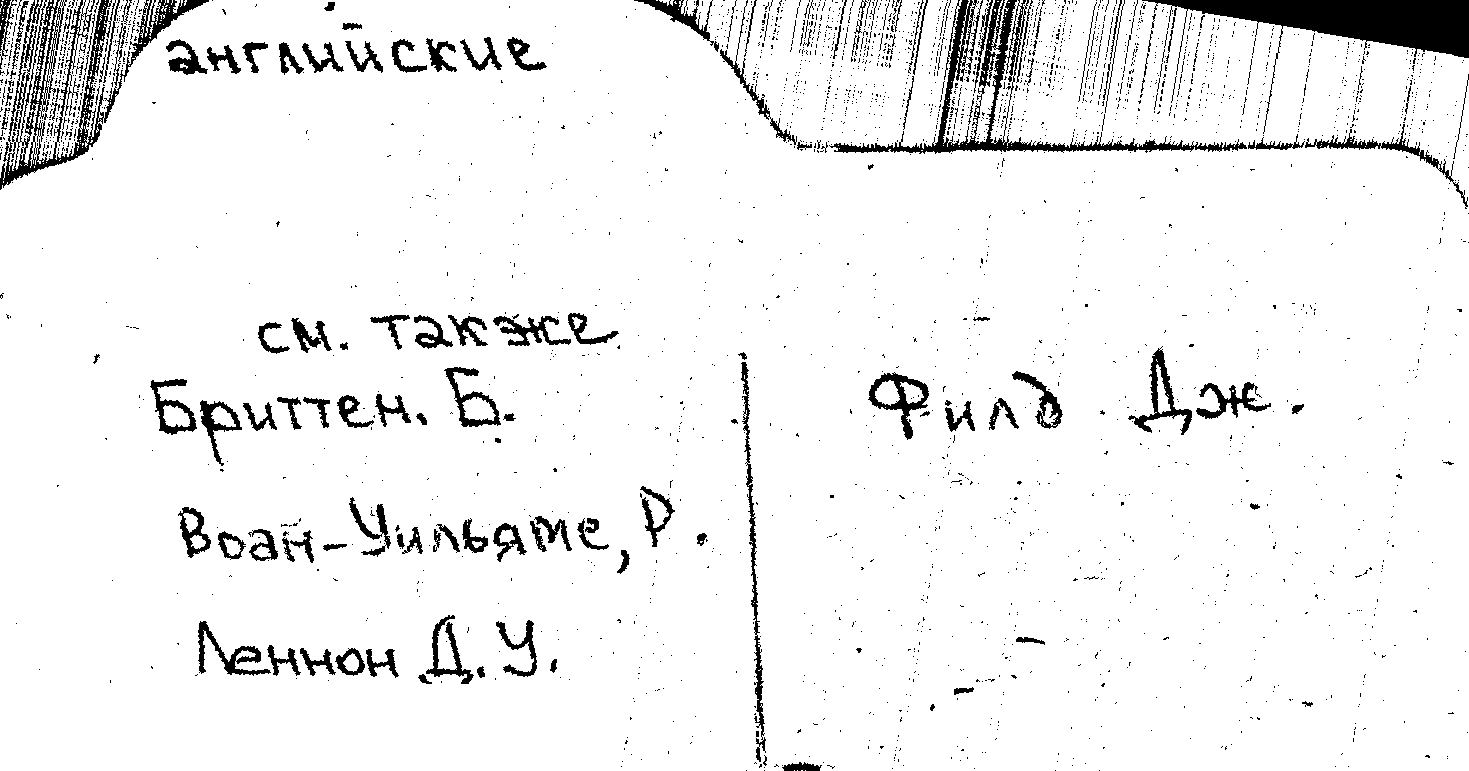 английские
см. также
Бриттен. Б.
Воан-Уильямс, Р.
Леннон Д. У.
Филд Дж.